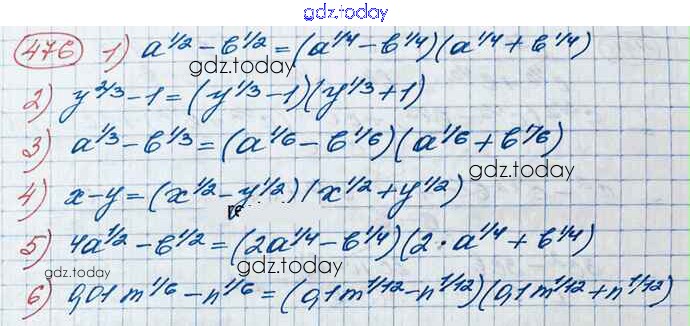 gdz.today
476 1) a^1/2 - b^1/2 = (a^1/4 - b^1/4)(a^1/4 + b^1/4)
gdz.today
2) y^2/3 - 1 = (y^1/3 - 1)(y^1/3 + 1)
3) a^1/3 - b^1/3 = (a^1/6 - b^1/6)(a^1/6 + b^1/6)
gdz.today
4) x - y = (x^1/2 - y^1/2)(x^1/2 + y^1/2)
5) 4a^1/2 - b^1/2 = (2a^1/4 - b^1/4)(2·a^1/4 + b^1/4)
gdz.today
gdz.today
6) 0,01m^1/6 - n^1/6 = (0,1m^1/12 - n^1/12)(0,1m^1/12 + n^1/12)